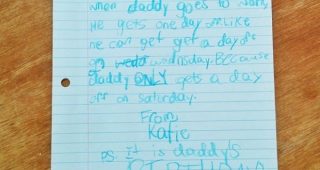 when daddy goes to work,
He gets one day off Like
he can get get a day off
on wednesday. BEcause
daddy ONLY gets a day
off on saturday.
From
Katie
PS. It is daddy's
BIRTHDAY